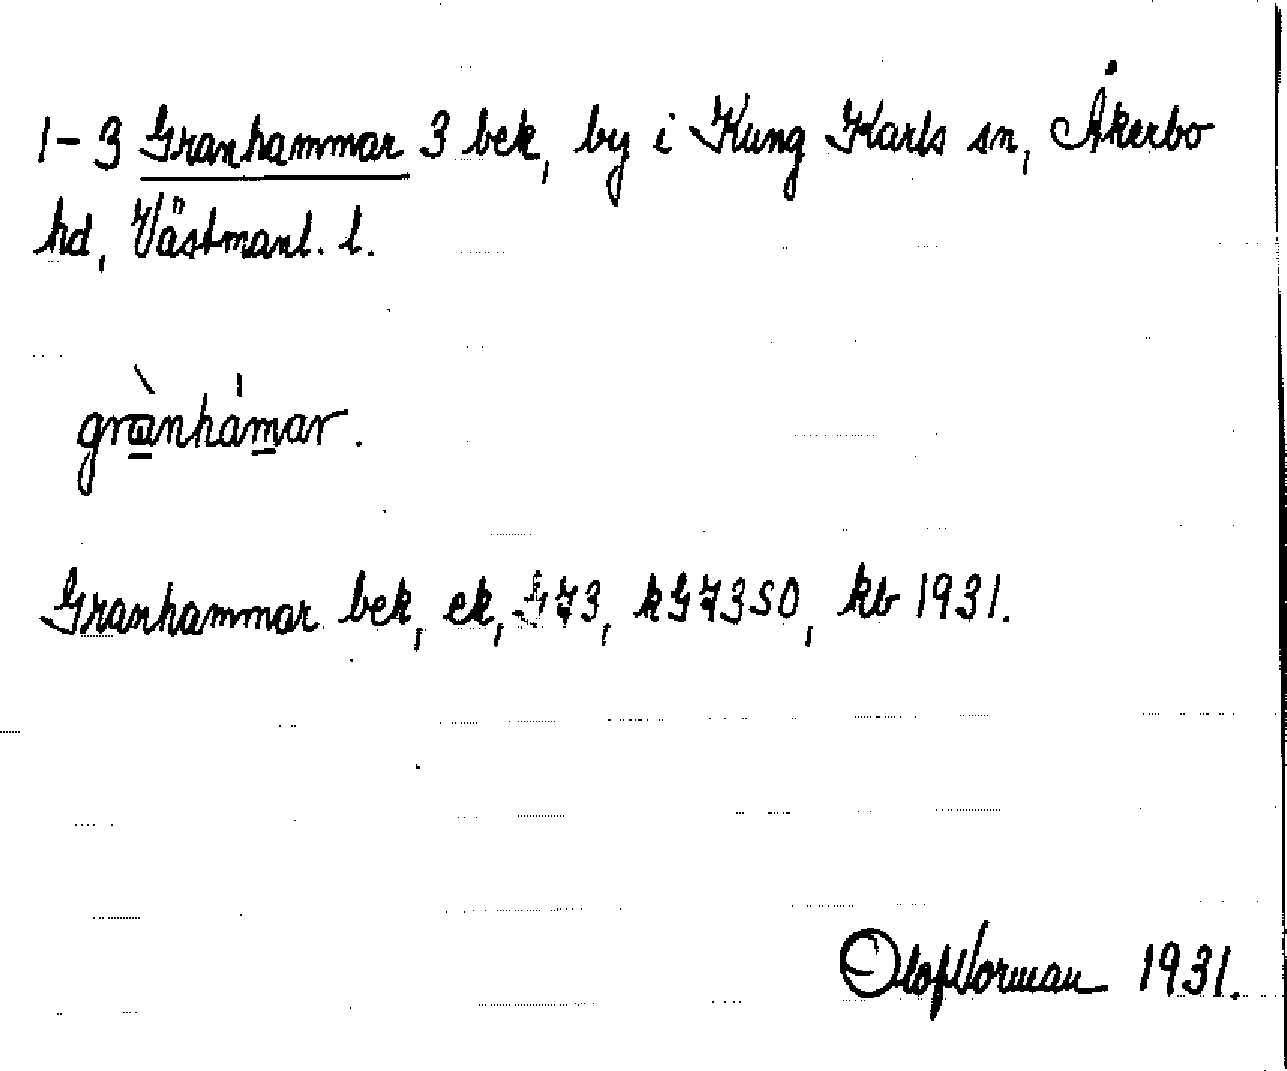 1-3 Granhammar 3 bek, by i Kung Karls sn, Åkerbo
hd, Västmanl. l.
grànhámar.
Granhammar bek, ek, GJ3, kGJ3SO, kb 1931.
Olof Vorman 1931.